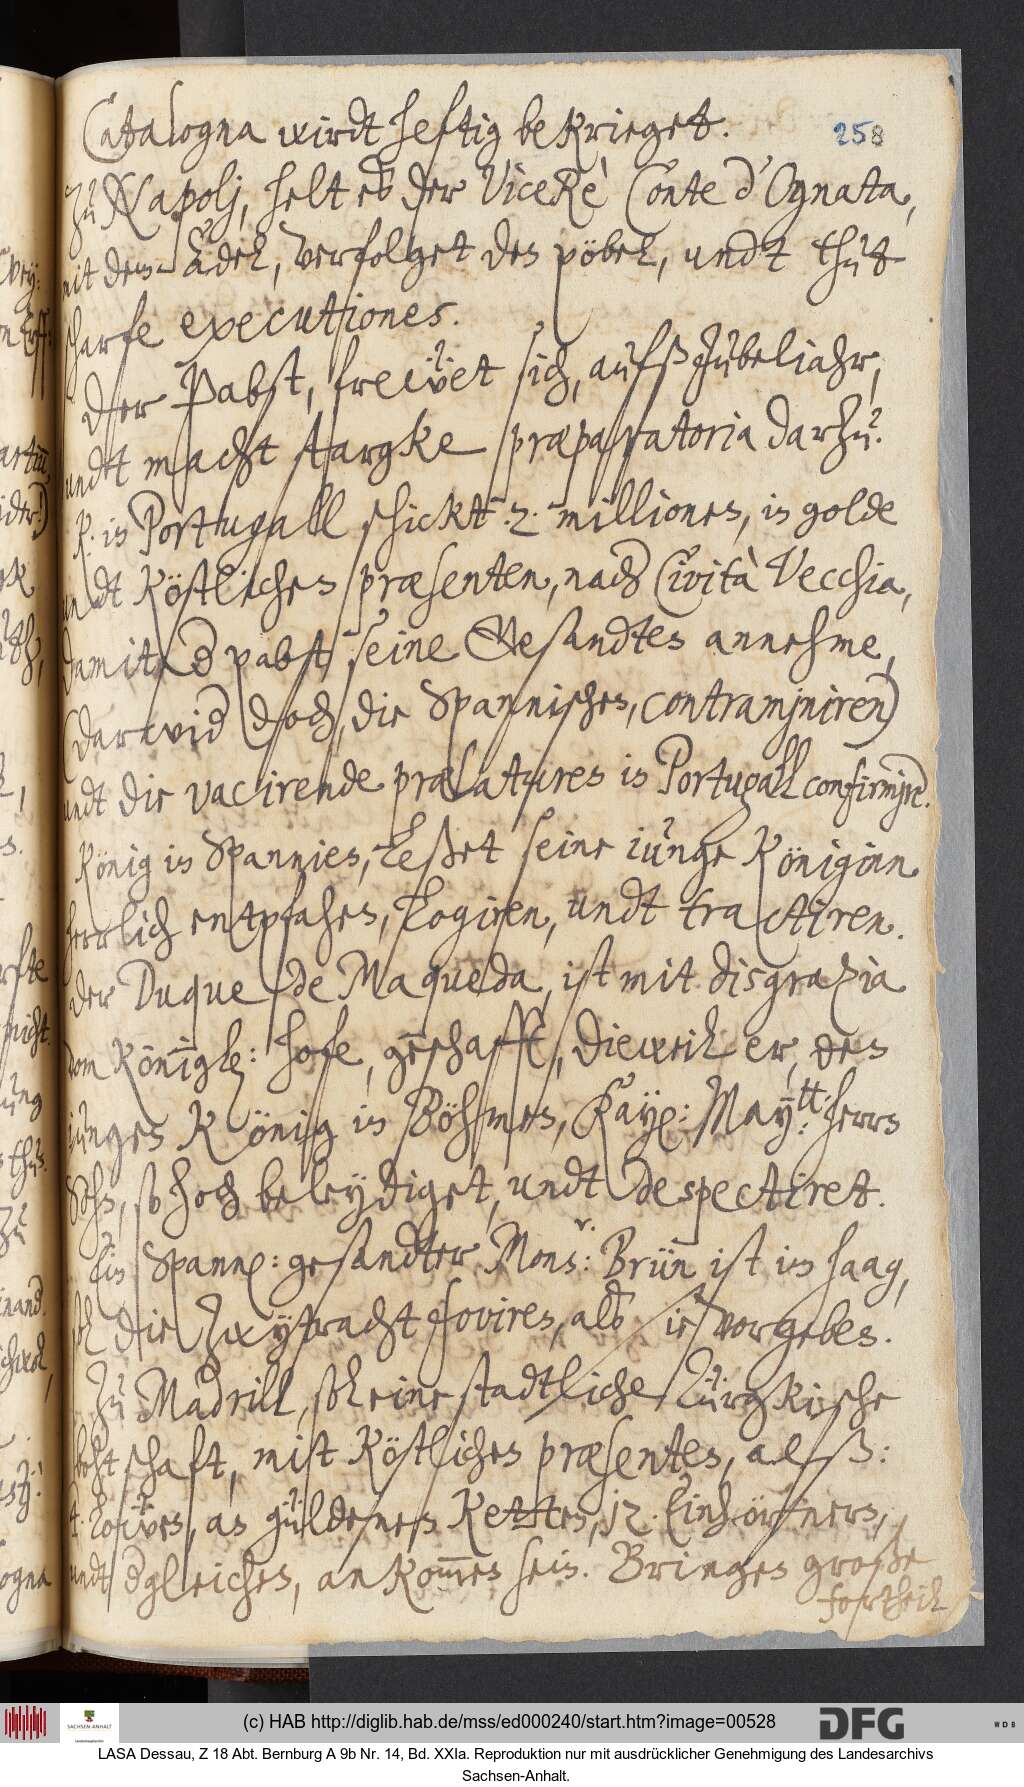 Catalogna wirdt heftig bekrieget.
258
Zu Napolj, helt es der ViceRè Conte d'Ognata,
mit dem Adel, verfolget den pöbel, undt thut
scharfe executiones.
Der Pabst, frewet sich, aufs Jubeljahr,
undt macht starcke præparatoria darzu.
K. in Portugall schickt .2. millionen, in golde
undt köstlichen præsenten, nach Cività Vecchia,
damit d pabst seine Gesandten annehme,
(darwid doch die Spannischen, contraminiren)
undt die vacirende prælaturen in Portugall confirmire.
König in Spannien, leßet seine iunge Königinn
herrlich entpfahen, logiren, undt tractiren.
Der Duque de Maqueda, ist mit disgrazia
vom Königl: hofe, geschafft, dieweil er, den
iungen König in Böhmen, Kay: May:tt: herrn
Sohn, so hoch beleydiget, undt despectiret.
Ein Spann: gesandter Mons:r: Brün ist in haag,
soll die Zwytracht foviren, als sie vorgeben.
Zu Madrill, soll eine stadtliche Türckische
bohtschaft, mit köstlichen præsenten, alß:
4. Löwen, an güldenen Ketten, 12. Einhörnern,
undt dgleichen, ankommen sein. Bringen große
fortheil
(c) HAB http://diglib.hab.de/mss/ed000240/start.htm?image=00528
SACHSEN-ANHALT
DFG
WDB
LASA Dessau, Z 18 Abt. Bernburg A 9b Nr. 14, Bd. XXIa. Reproduktion nur mit ausdrücklicher Genehmigung des Landesarchivs
Sachsen-Anhalt.